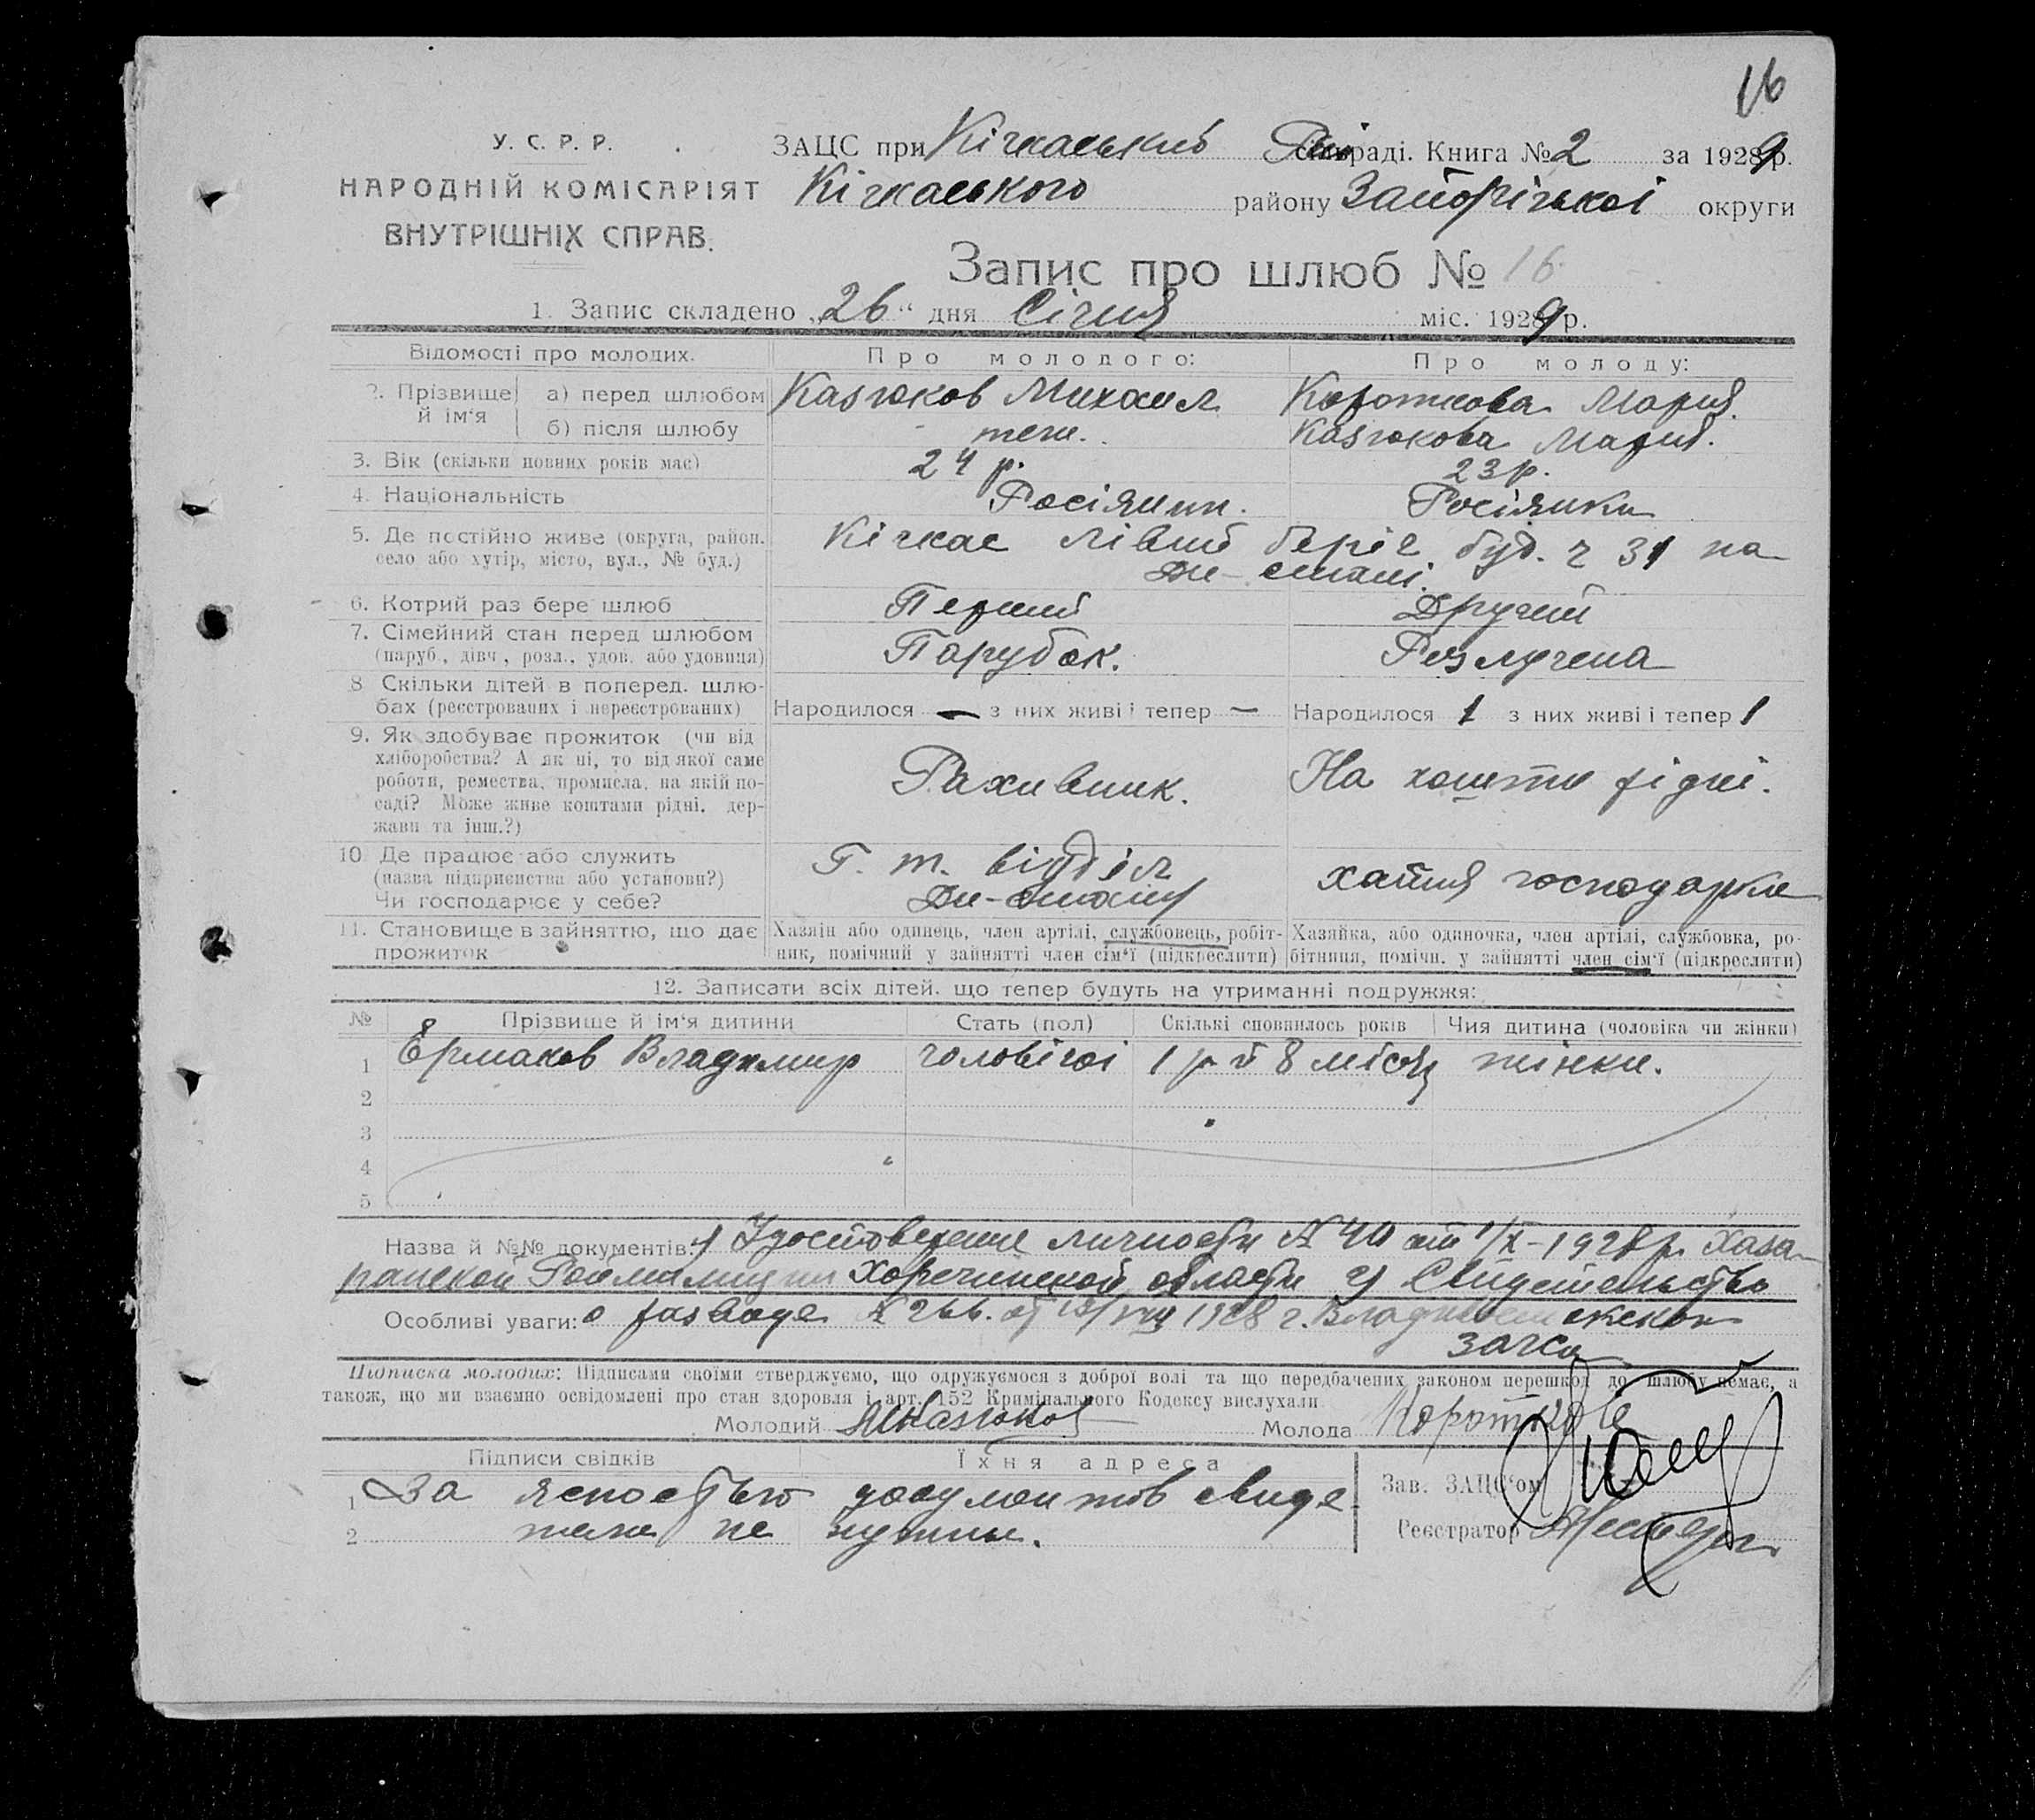 16
У. С. Р. Р.
НАРОДНІЙ КОМІСАРІЯТ
ВНУТРІШНІХ СПРАВ.
ЗАЦС при Кічкаський раді. Книга № 2 за 1929 р.
Кічкаського району Запорізької округи
Запис про шлюб № 16
1. Запис складено „26“ дня Січня міс. 1929 р.
Відомості про молодих. Про молодого: Про молоду:
2. Прізвище й ім‘я а) перед шлюбом Казюков Михаил Короткова Мария.
б) після шлюбу теж. Казюкова Мария.
3. Вік (скільки повних років має) 24 р. 23 р.
4. Національність Росіянин. Росіянка
5. Де постійно живе (округа, район, Кічкас лівий беріг буд. ч 31 на
село або хутір, місто, вул., № буд.) Дн-стані.
6. Котрий раз бере шлюб Перший Другий
7. Сімейний стан перед шлюбом Парубок. Розлучена
(паруб., дівч., розл., удов. або удовиця)
8 Скільки дітей в поперед. шлю-
бах (реєстрованих і нереєстрованих) Народилося — з них живі і тепер — Народилося 1 з них живі і тепер 1
9. Як здобуває прожиток (чи від
хліборобства? А як ні, то від якої саме
роботи, ремества, промисла, на якій по- Рахивник. На кошти рідні.
саді? Може живе коштами рідні, дер-
жави та інш.?)
10 Де працює або служить Г. т. відділ
(назва підприємства або установи?) хатня господарка
Чи господарює у себе? Дн-стану
11. Становище в зайняттю, що дає Хазяін або одинець, член артілі, службовець, робіт- Хазяйка, або одиночка, член артілі, службовка, ро-
прожиток ник, помічний у зайнятті член сім‘ї (підкреслити) бітниця, помічн. у зайнятті член сім‘ї (підкреслити)
12. Записати всіх дітей, що тепер будуть на утриманні подружжя:
№ Прізвище й ім‘я дитини Стать (пол) Скількі сповнилось років Чия дитина (чоловіка чи жінки)
1 Ермаков Владимир чоловічої 1 р й 8 місяц жінки.
2
3
4
5
Назва й №№ документів: 1) Удостоверение личности № 40 от 1/X-1928 р.
области 2) Свидетельство
Особливі уваги: о разводе № 266. от 1928 г.
загса
Підписка молодих: Підписами своїми стверджуємо, що одружуємося з доброї волі та що передбачених законом перешкод до шлюбу немає, а
також, що ми взаємно освідомлені про стан здоровля і арт. 152 Кримінального Кодексу вислухали
Молодий МКазюков Молода Короткова
Підписи свідків Їхня адреса
1 За ясностью документов свиде Зав. ЗАЦС‘ом
2 тели не нужны. Реєстратор